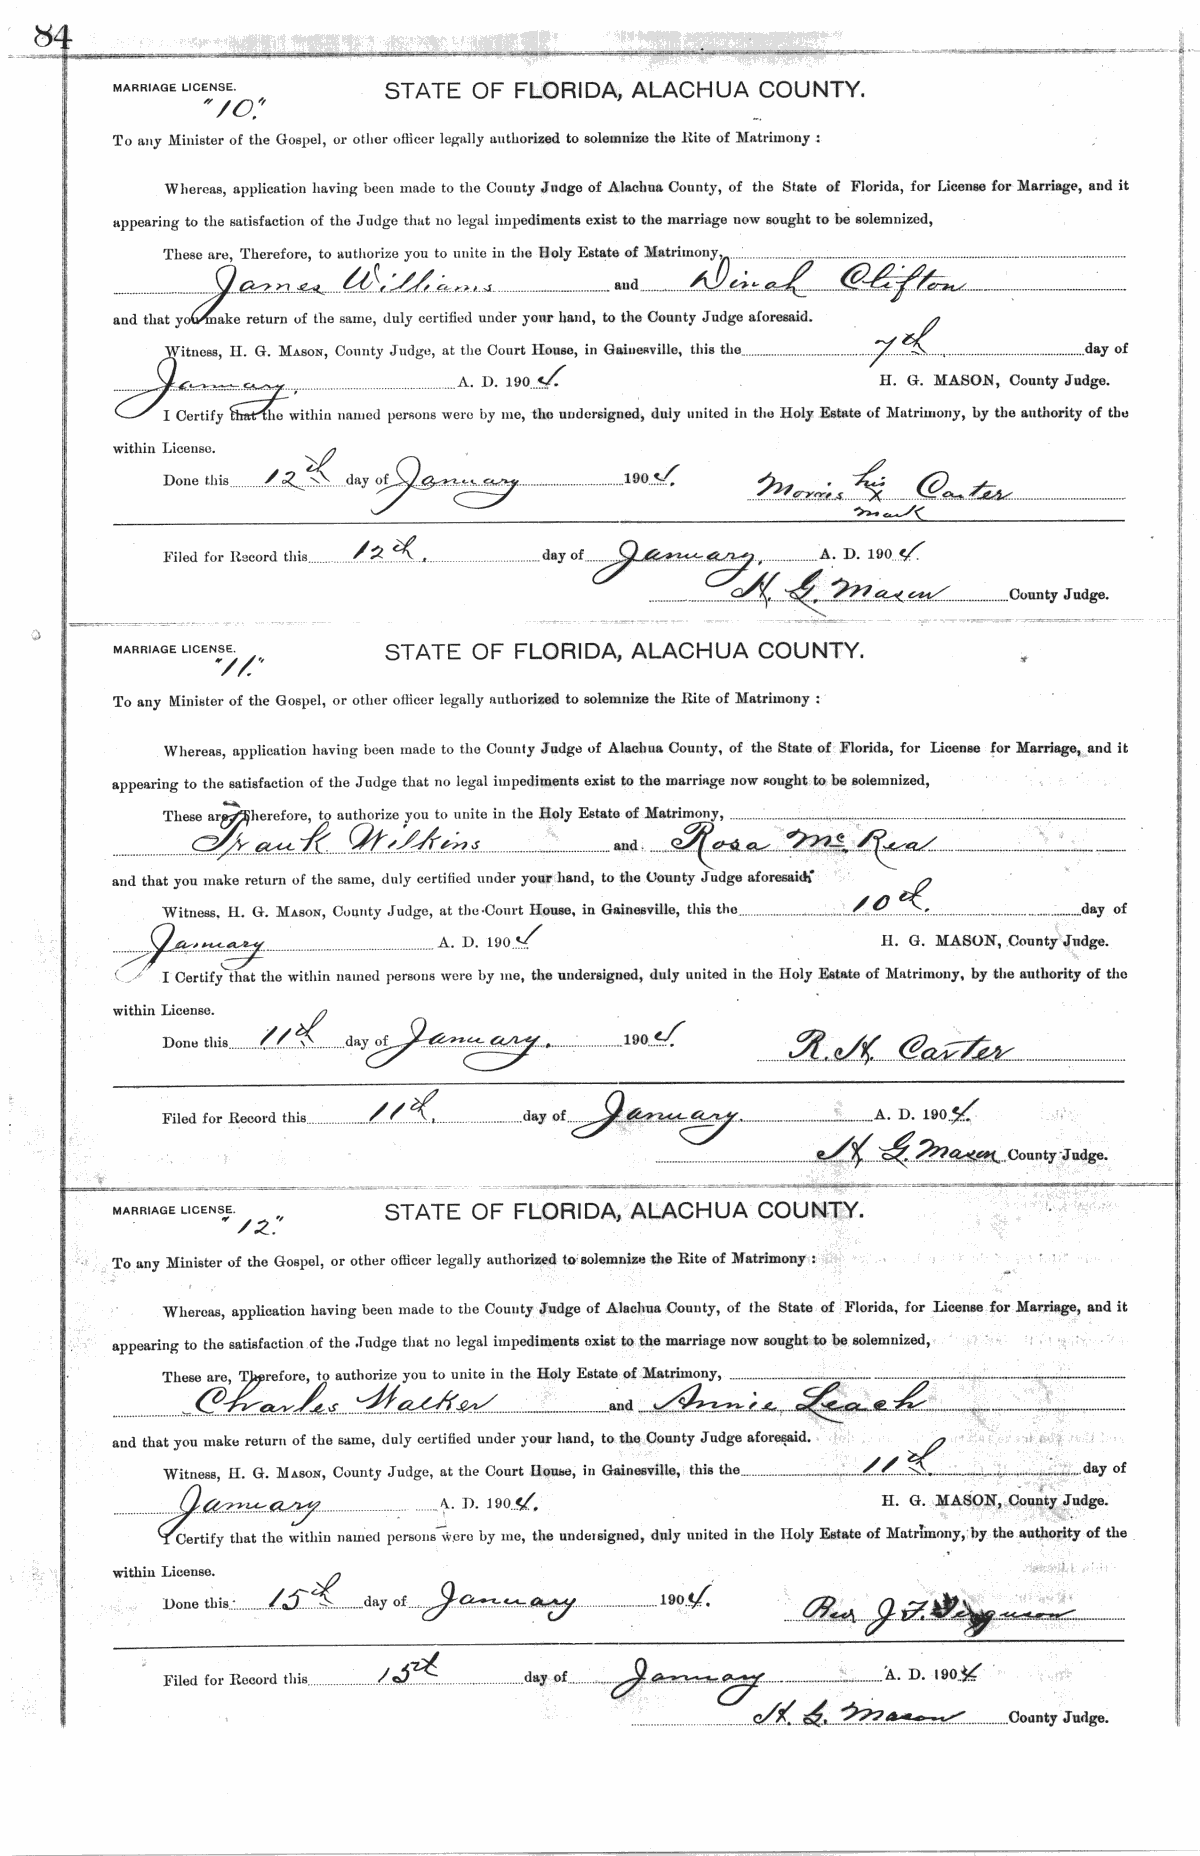 84
MARRIAGE LICENSE. STATE OF FLORIDA, ALACHUA COUNTY.
"10."
To any Minister of the Gospel, or other officer legally authorized to solemnize the Rite of Matrimony :
Whereas, application having been made to the County Judge of Alachua County, of the State of Florida, for License for Marriage, and it
appearing to the satisfaction of the Judge that no legal impediments exist to the marriage now sought to be solemnized,
These are, Therefore, to authorize you to unite in the Holy Estate of Matrimony,
James Williams and Dinah Clifton
and that you make return of the same, duly certified under your hand, to the County Judge aforesaid.
Witness, H. G. MASON, County Judge, at the Court House, in Gainesville, this the 7th day of
January. A. D. 1904. H. G. MASON, County Judge.
I Certify that the within named persons were by me, the undersigned, duly united in the Holy Estate of Matrimony, by the authority of the
within License.
Done this 12th day of January 1904. Morris his x Carter
mark
Filed for Record this 12th. day of January. A. D. 1904.
H. G. Mason County Judge.
MARRIAGE LICENSE. STATE OF FLORIDA, ALACHUA COUNTY.
"11."
To any Minister of the Gospel, or other officer legally authorized to solemnize the Rite of Matrimony :
Whereas, application having been made to the County Judge of Alachua County, of the State of Florida, for License for Marriage, and it
appearing to the satisfaction of the Judge that no legal impediments exist to the marriage now sought to be solemnized,
These are, Therefore, to authorize you to unite in the Holy Estate of Matrimony,
Frank Wilkins and Rosa McRea
and that you make return of the same, duly certified under your hand, to the County Judge aforesaid.
Witness, H. G. MASON, County Judge, at the Court House, in Gainesville, this the 10th. day of
January A. D. 1904 H. G. MASON, County Judge.
I Certify that the within named persons were by me, the undersigned, duly united in the Holy Estate of Matrimony, by the authority of the
within License.
Done this 11th day of January. 1904. R. H. Carter
Filed for Record this 11th. day of January. A. D. 1904.
H. G. Mason County Judge.
MARRIAGE LICENSE. STATE OF FLORIDA, ALACHUA COUNTY.
"12."
To any Minister of the Gospel, or other officer legally authorized to solemnize the Rite of Matrimony :
Whereas, application having been made to the County Judge of Alachua County, of the State of Florida, for License for Marriage, and it
appearing to the satisfaction of the Judge that no legal impediments exist to the marriage now sought to be solemnized,
These are, Therefore, to authorize you to unite in the Holy Estate of Matrimony,
Charles Walker and Annie Leach
and that you make return of the same, duly certified under your hand, to the County Judge aforesaid.
Witness, H. G. MASON, County Judge, at the Court House, in Gainesville, this the 11th. day of
January A. D. 1904. H. G. MASON, County Judge.
I Certify that the within named persons were by me, the undersigned, duly united in the Holy Estate of Matrimony, by the authority of the
within License.
Done this 15th day of January 1904. Rev J F. Ferguson
Filed for Record this 15th day of January A. D. 1904
H. G. Mason County Judge.